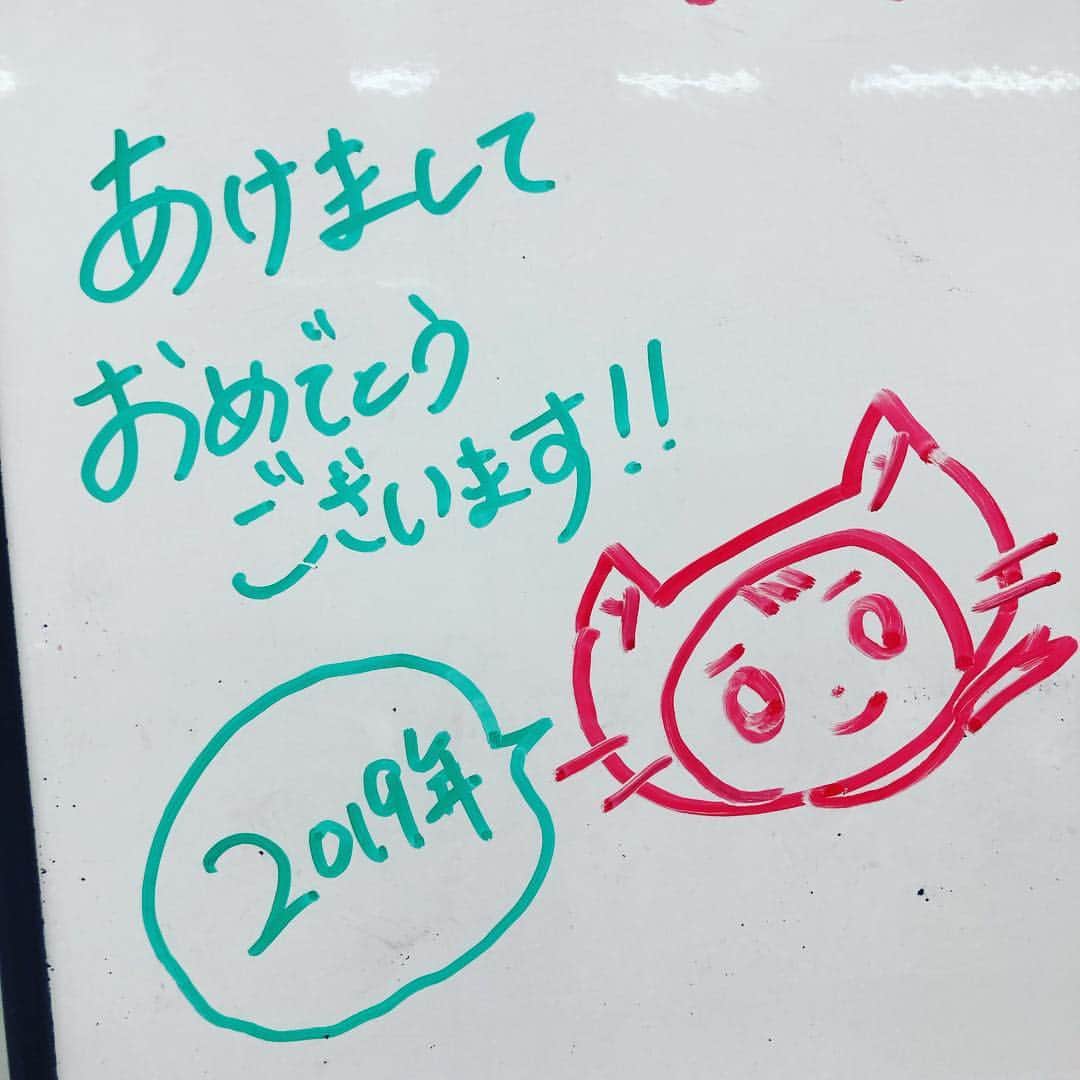 あけまして
おめでとう
ございます!!
2019年